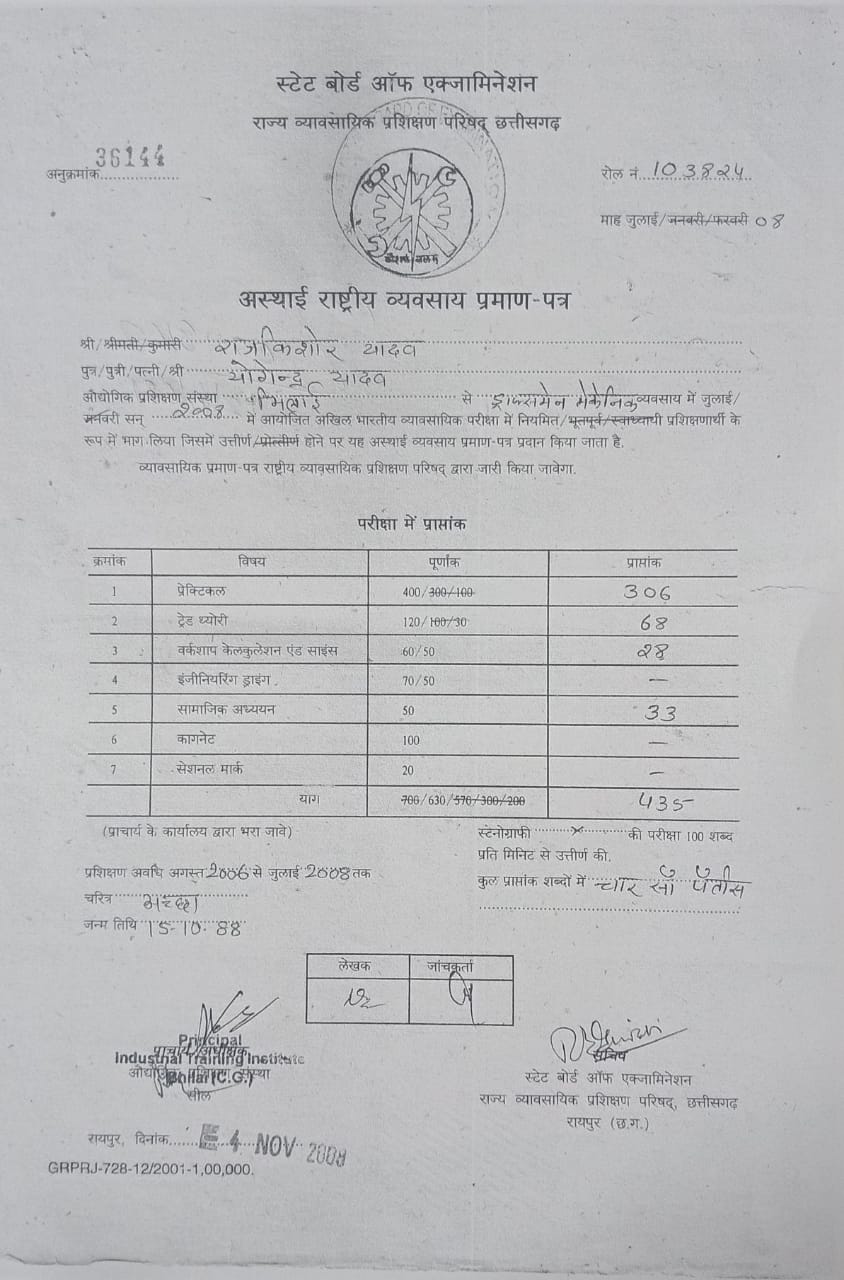 स्टेट बोर्ड ऑफ एक्जामिनेशन
राज्य व्यावसायिक प्रशिक्षण परिषद् छत्तीसगढ़
अनुक्रमांक 36144
रोल नं. 103824
माह जुलाई/जनवरी/फरवरी 08
अस्थाई राष्ट्रीय व्यवसाय प्रमाण-पत्र
श्री/श्रीमती/कुमारी राजकिशोर यादव
पुत्र/पुत्री/पत्नी/श्री योगेन्द्र यादव
औद्योगिक प्रशिक्षण संस्था भिलाई से ड्राफ्समेन मेकेनिक व्यवसाय में जुलाई/
सन् 2008 में आयोजित अखिल भारतीय व्यावसायिक परीक्षा में नियमित/भूतपूर्व/स्वाध्यायी प्रशिक्षणार्थी के
रूप में भाग लिया जिसमें उत्तीर्ण/प्रोत्तीर्ण होने पर यह अस्थाई व्यवसाय प्रमाण-पत्र प्रदान किया जाता है.
व्यावसायिक प्रमाण-पत्र राष्ट्रीय व्यावसायिक प्रशिक्षण परिषद् द्वारा जारी किया जावेगा.
परीक्षा में प्राप्तांक
क्रमांक विषय पूर्णांक प्राप्तांक
1 प्रेक्टिकल 400/300/100 306
2 ट्रेड थ्योरी 120/100/30 68
3 वर्कशाप केलकुलेशन एंड साइंस 60/50 28
4 इंजीनियरिंग ड्राइंग. 70/50 —
5 सामाजिक अध्ययन 50 33
6 कागनेट 100 —
7 सेशनल मार्क 20 —
याग 700/630/570/300/200 435
(प्राचार्य के कार्यालय द्वारा भरा जावे)
स्टेनोग्राफी x की परीक्षा 100 शब्द
प्रति मिनिट से उत्तीर्ण की.
प्रशिक्षण अवधि अगस्त 2006 से जुलाई 2008 तक
कुल प्राप्तांक शब्दों में चार सौ पैंतीस
चरित्र अच्छा
जन्म तिथि 15-10-88
लेखक जांचकर्ता
Principal
प्राचार्य/अधीक्षक
Industrial Training Institute
औद्योगिक प्रशिक्षण संस्था
Bhilai (C.G.)
सील
सचिव
स्टेट बोर्ड ऑफ एक्जामिनेशन
राज्य व्यावसायिक प्रशिक्षण परिषद्, छत्तीसगढ़
रायपुर (छ.ग.)
रायपुर, दिनांक 4 NOV 2008
GRPRJ-728-12/2001-1,00,000.